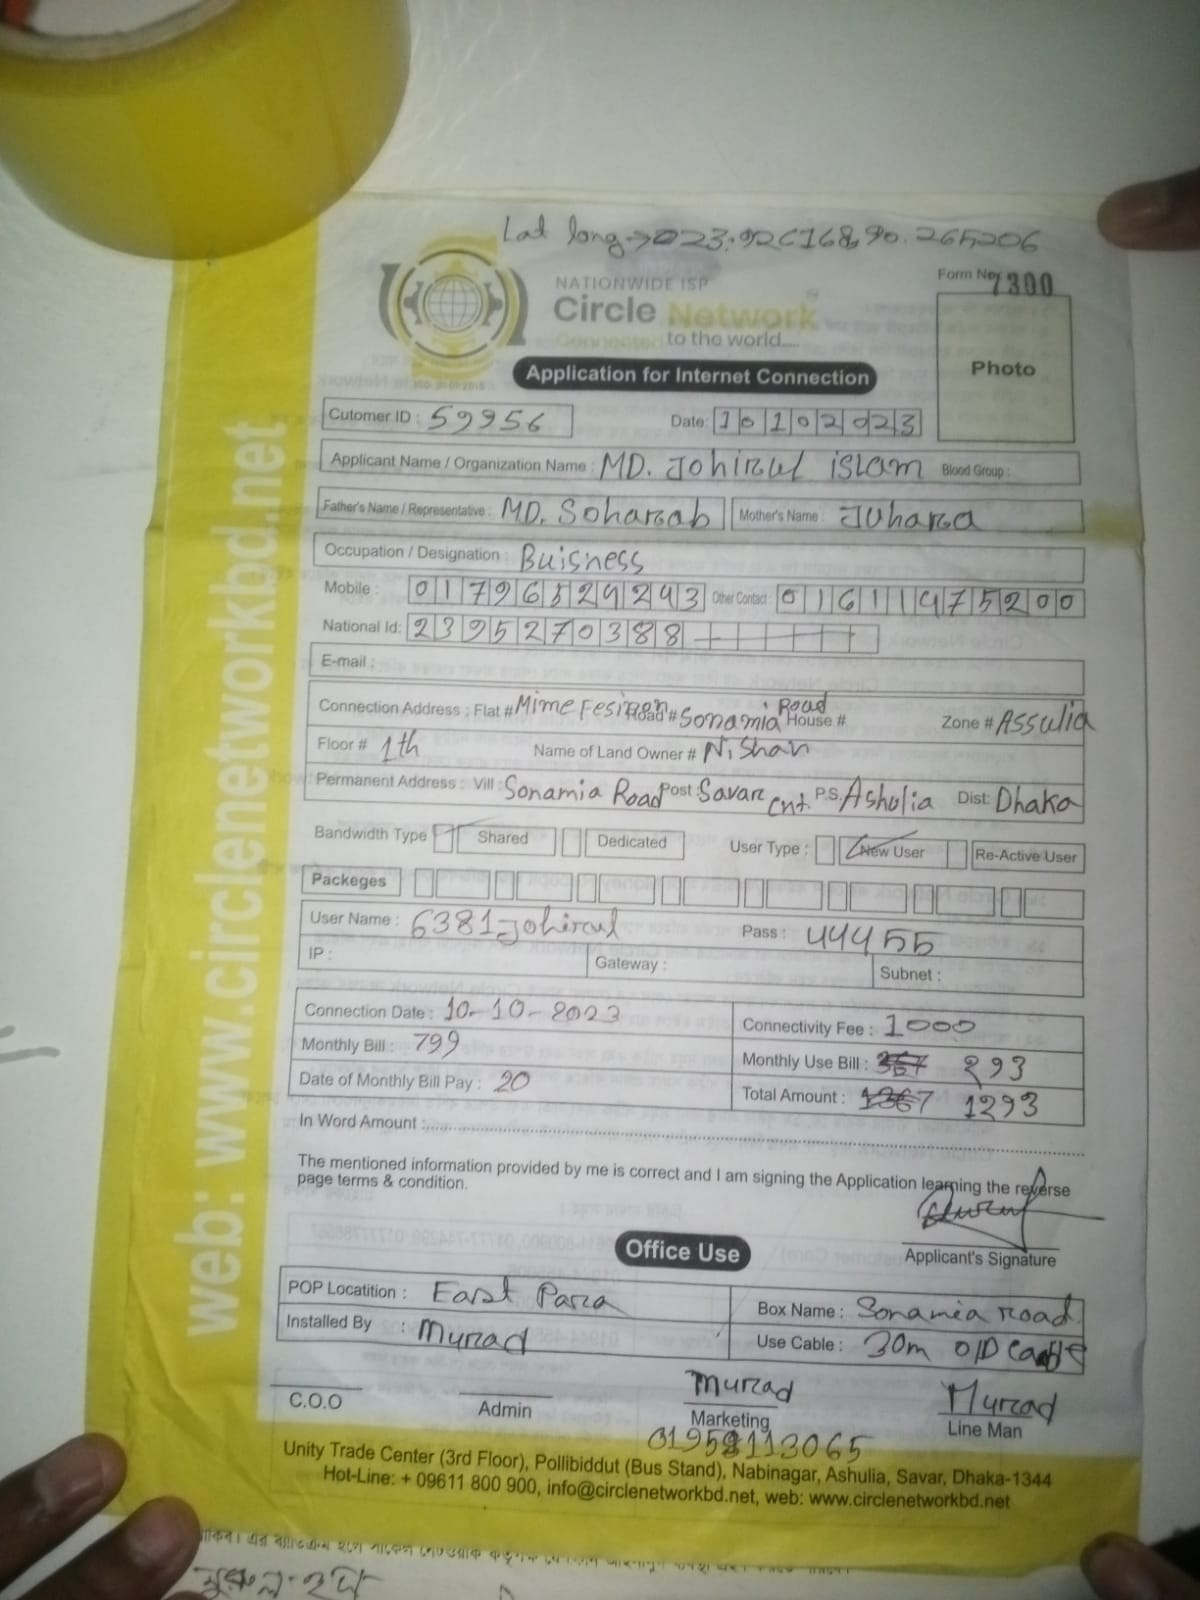 Lat long→ 23.926168,90.265206
Form No 7300
NATIONWIDE ISP
Circle Network
Connected to the world....
Photo
Application for Internet Connection
Cutomer ID : 59956 Date: 10102023
Applicant Name / Organization Name : MD. Johirul islam Blood Group :
Father's Name / Representative : MD. Soharab Mother's Name : JUhara
Occupation / Designation : Buisness
Mobile : 01796524243 Other Contact : 01611475200
National Id: 2395270388
E-mail :
Connection Address : Flat # Mime Road # Sonamia Road House # Zone # Assulia
Floor # 1th Name of Land Owner # Nishan
Permanent Address : Vill : Sonamia Road Post : Savar cnt. P.S. Ashulia Dist: Dhaka
Bandwidth Type Shared Dedicated User Type : New User Re-Active User
Packeges
User Name : 6381-Johirul Pass : 44455
IP : Gateway : Subnet :
Connection Date : 10-10-2023 Connectivity Fee : 1000
Monthly Bill : 799 Monthly Use Bill : 293
Date of Monthly Bill Pay : 20 Total Amount : 1293
In Word Amount :
The mentioned information provided by me is correct and I am signing the Application learning the reverse
page terms & condition.
Applicant's Signature
Office Use
POP Locatition : East Para Box Name : Sonamia road.
Installed By : Murad Use Cable : 30m OlD Cable
Murad Murad
C.O.O Admin Marketing Line Man
01958113065
Unity Trade Center (3rd Floor), Pollibiddut (Bus Stand), Nabinagar, Ashulia, Savar, Dhaka-1344
Hot-Line: + 09611 800 900, info@circlenetworkbd.net, web: www.circlenetworkbd.net
web: www.circlenetworkbd.net